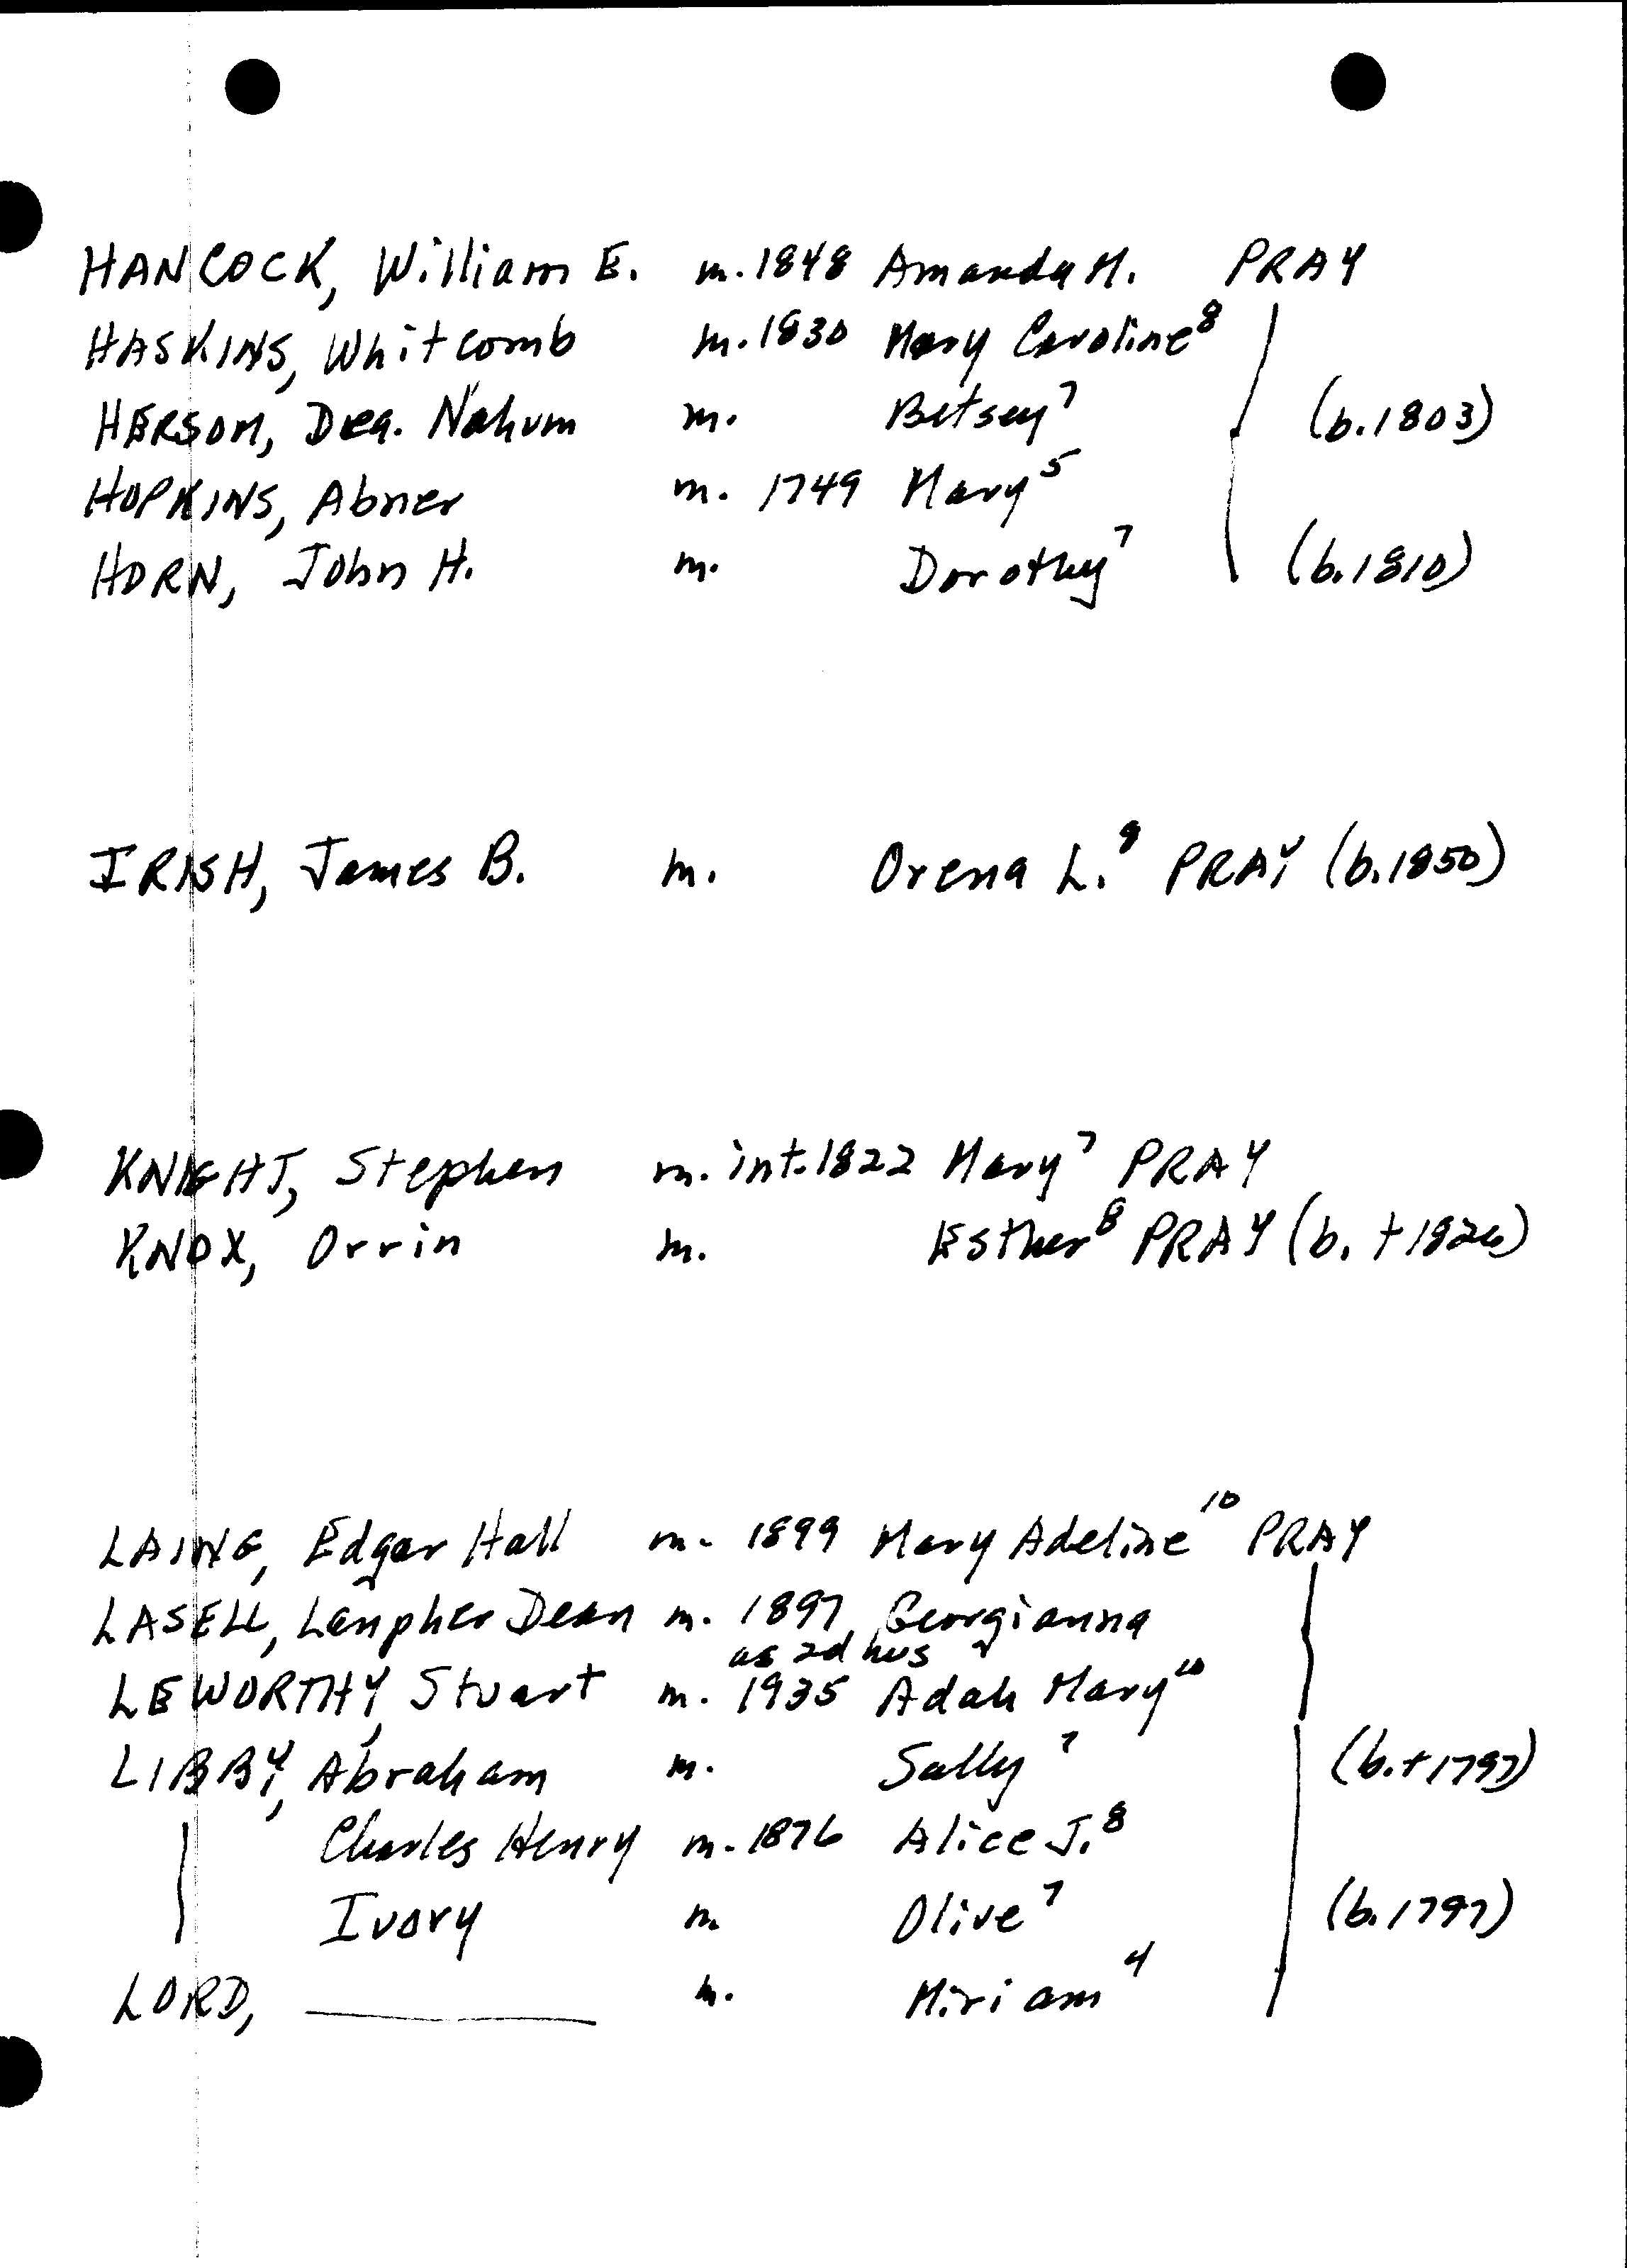 HANCOCK, William E. m. 1848 Amanda M. PRAY
HASKINS, Whitcomb m. 1830 Mary Caroline⁸
HERSOM, Dea. Nahum m. Betsey⁷ (b. 1803)
HOPKINS, Abner m. 1749 Mary⁵
HORN, John H. m. Dorothy⁷ (b. 1810)
IRISH, James B. m. Orena L.⁹ PRAY (b. 1850)
KNIGHT, Stephen m. int. 1822 Mary⁷ PRAY
KNOX, Orrin m. Esther⁸ PRAY (b. + 1826)
LAING, Edgar Hall m. 1899 Mary Adeline¹⁰ PRAY
LASELL, Lanpher Dean m. 1897 Georgianna
as 2d hus
LEWORTHY, Stuart m. 1935 Adah Mary¹⁰
LIBBY, Abraham m. Sally⁷ (b. + 1797)
Charles Henry m. 1876 Alice J.⁸
Ivory m Olive⁷ (b. 1797)
LORD, ______ m. Miriam⁴